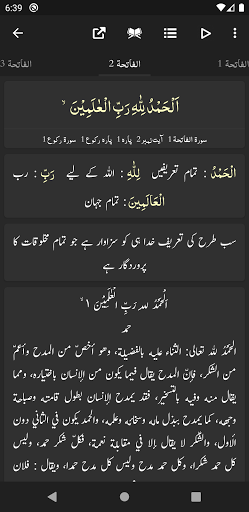 6:39
الفاتحة 1
الفاتحة 2
الفاتحة 3
اَلۡحَمۡدُ لِلّٰهِ رَبِّ الۡعٰلَمِيۡنَ ۙ
سورۃ الفاتحة 1 آیت نمبر 2 پارہ 1 پارہ رکوع 1 سورۃ رکوع 1
الْحَمْدُ : تمام تعریفیں لِلَّهِ : اللہ کے لیے رَبِّ : رب
الْعَالَمِينَ : تمام جہان
سب طرح کی تعریف خدا ہی کو سزاوار ہے جو تمام مخلوقات کا
پروردگار ہے
اَلْحَمْدُ لِلهِ رَبِّ الْعٰلَمِيْنَ ۱ ۙ
حمد
الحَمْدُ لله تعالى: الثناء عليه بالفضيلة، وهو أخصّ من المدح وأعمّ
من الشكر، فإنّ المدح يقال فيما يكون من الإنسان باختياره، ومما
يقال منه وفيه بالتسخير، فقد يمدح الإنسان بطول قامته وصباحة
وجهه، كما يمدح ببذل ماله وسخائه وعلمه، والحمد يكون في الثاني دون
الأول، والشُّكر لا يقال إلا في مقابلة نعمة، فكلّ شكر حمد، وليس كل
حمد شكرا، وكل حمد مدح وليس كل مدح حمدا، ويقال : فلان